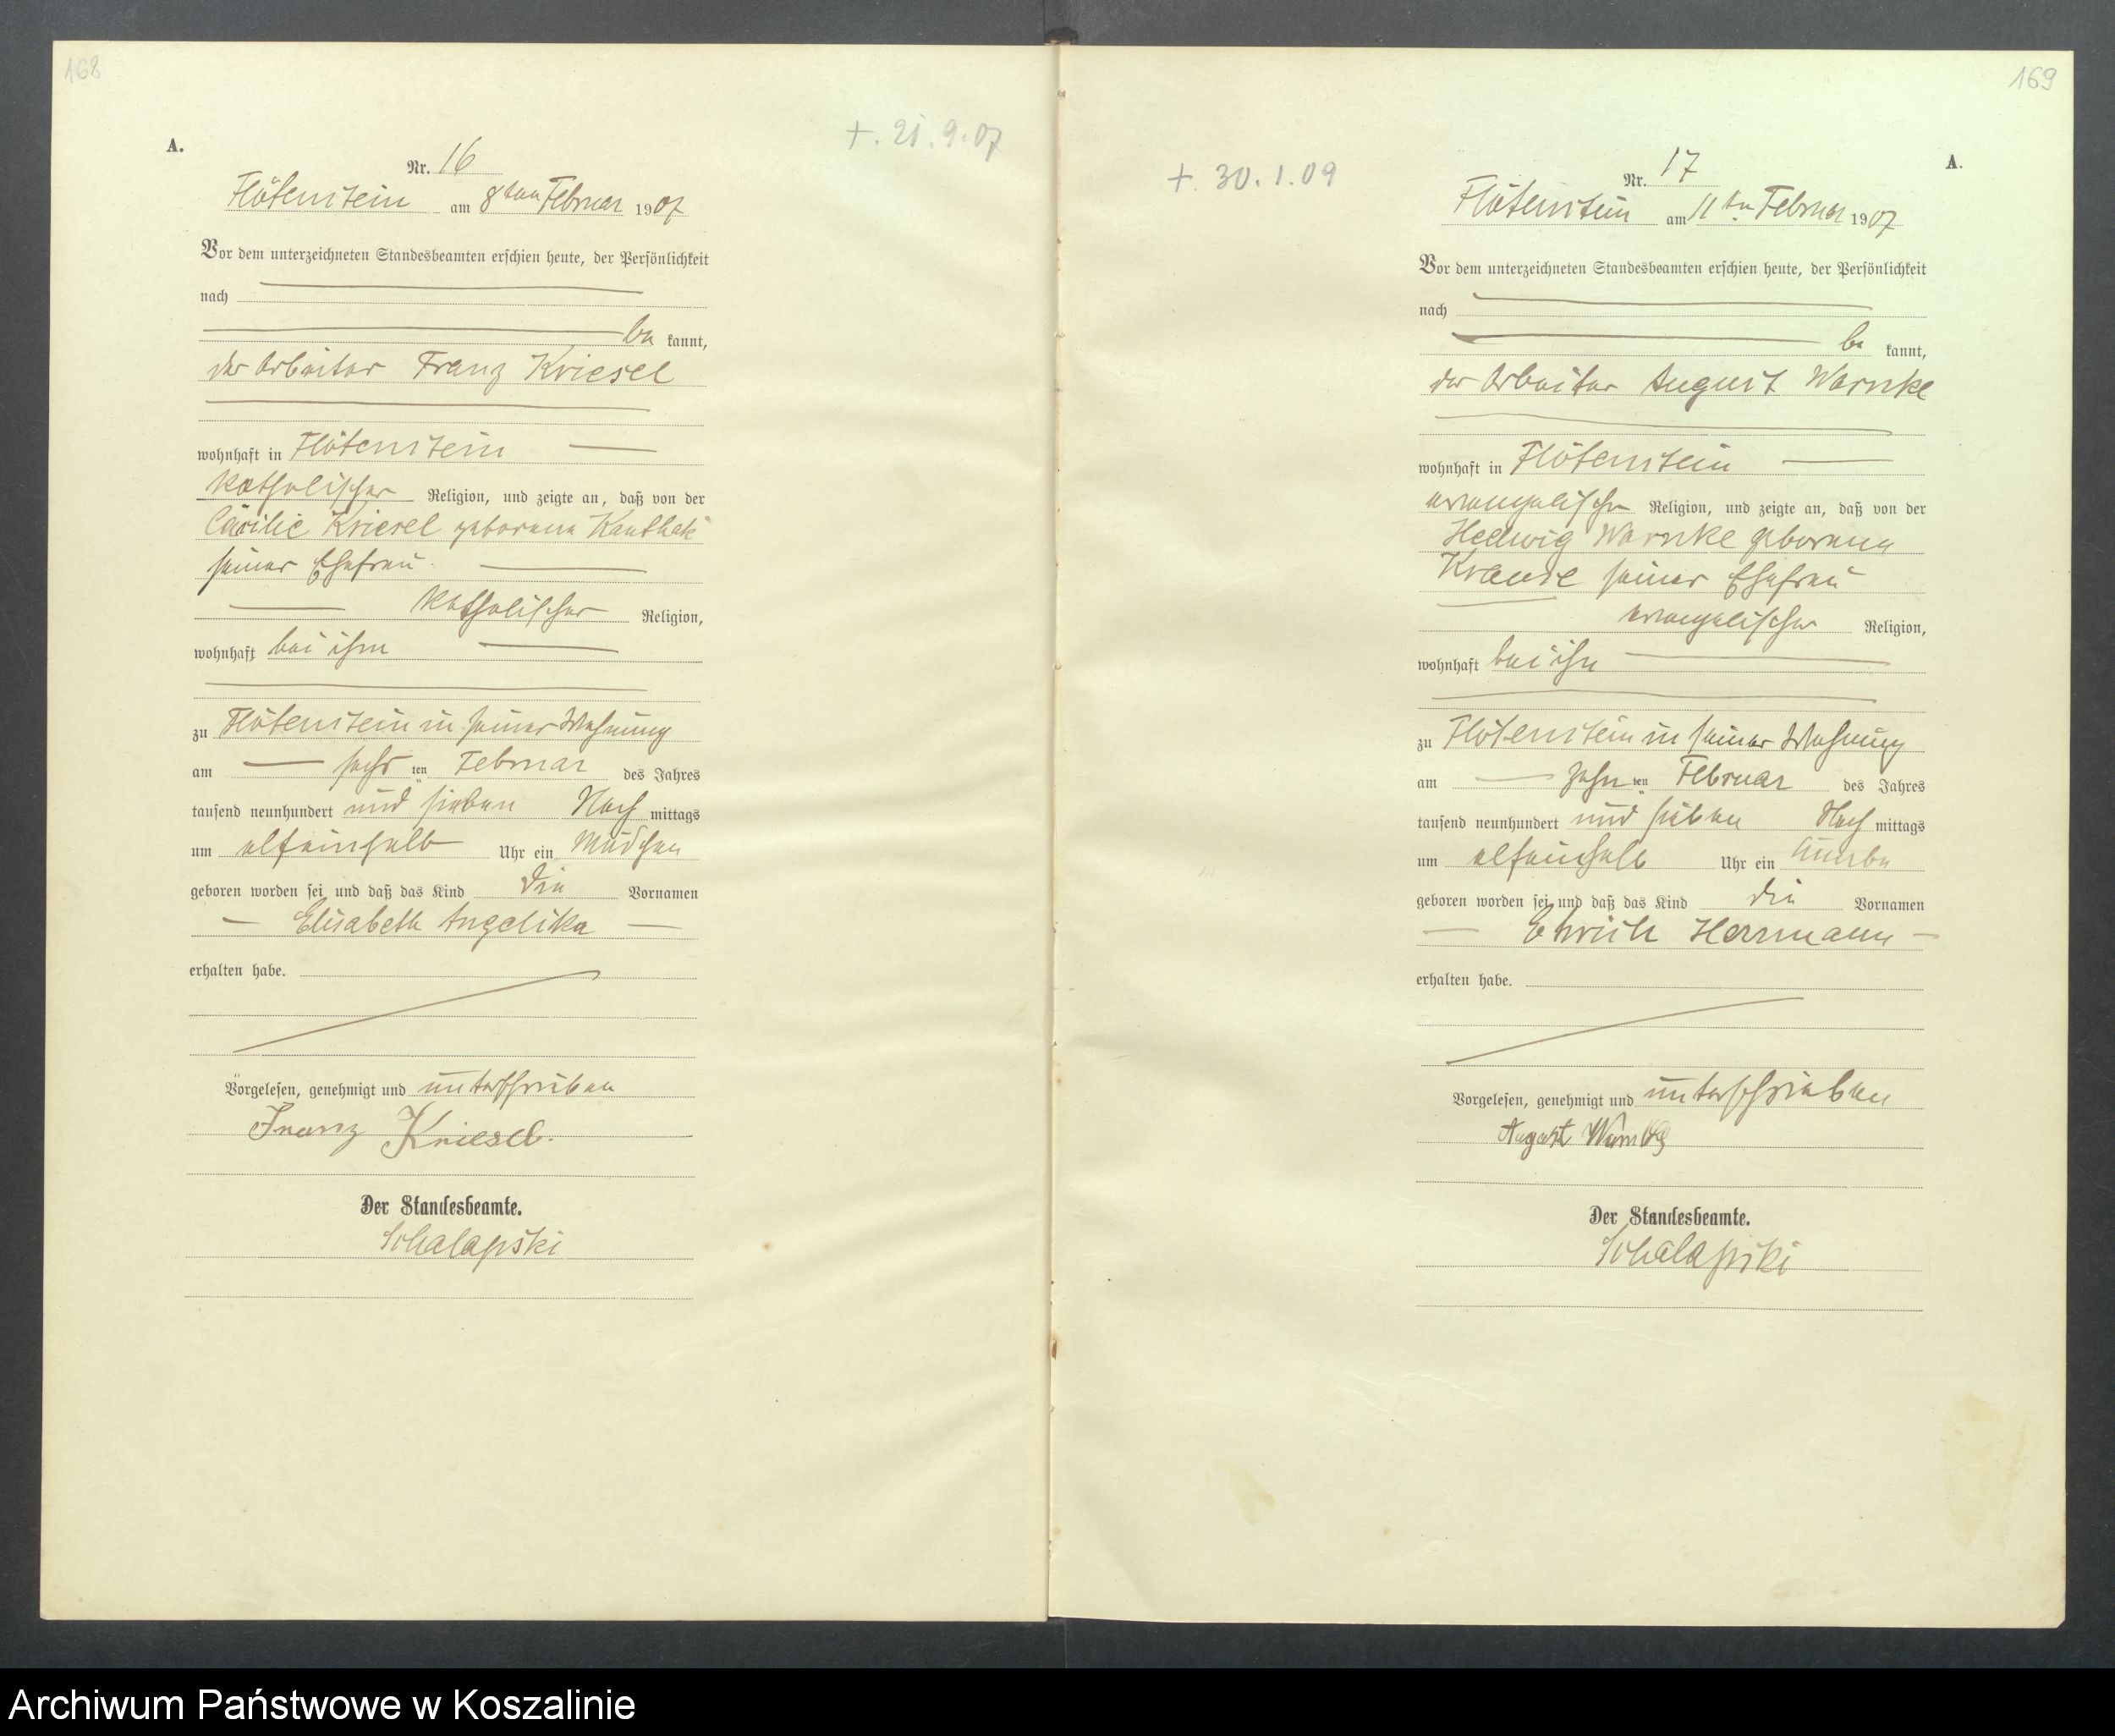 168
A.
+. 21.9.07
Nr. 16
Flötenstein am 8ten Februar 1907
Vor dem unterzeichneten Standesbeamten erschien heute, der Persönlichkeit
nach
be kannt,
der Arbeiter Franz Kriesel
wohnhaft in Flötenstein
katholischer Religion, und zeigte an, daß von der
Cäcilie Kriesel geborene
seiner Ehefrau
katholischer Religion,
wohnhaft bei ihm
zu Flötenstein in seiner Wohnung
am sechs ten Februar des Jahres
tausend neunhundert und sieben Nach mittags
um elfeinhalb Uhr ein Mädchen
geboren worden sei und daß das Kind die Vornamen
Elisabeth Angelika
erhalten habe.
Vorgelesen, genehmigt und unterschrieben
Franz Kriesel.
Der Standesbeamte.
Schalapski
169
A.
+. 30.1.09
Nr. 17
Flötenstein am 11ten Februar 1907
Vor dem unterzeichneten Standesbeamten erschien heute, der Persönlichkeit
nach
be kannt,
der Arbeiter August Warnke
wohnhaft in Flötenstein
evangelischer Religion, und zeigte an, daß von der
Hedwig Warnke geborene
Krause seiner Ehefrau
evangelischer Religion,
wohnhaft bei ihm
zu Flötenstein in seiner Wohnung
am zehn ten Februar des Jahres
tausend neunhundert und sieben Nach mittags
um elfeinhalb Uhr ein Knabe
geboren worden sei und daß das Kind die Vornamen
Ehrich Herrmann
erhalten habe.
Vorgelesen, genehmigt und unterschrieben
August Warnke
Der Standesbeamte.
Schalapski
Archiwum Państwowe w Koszalinie